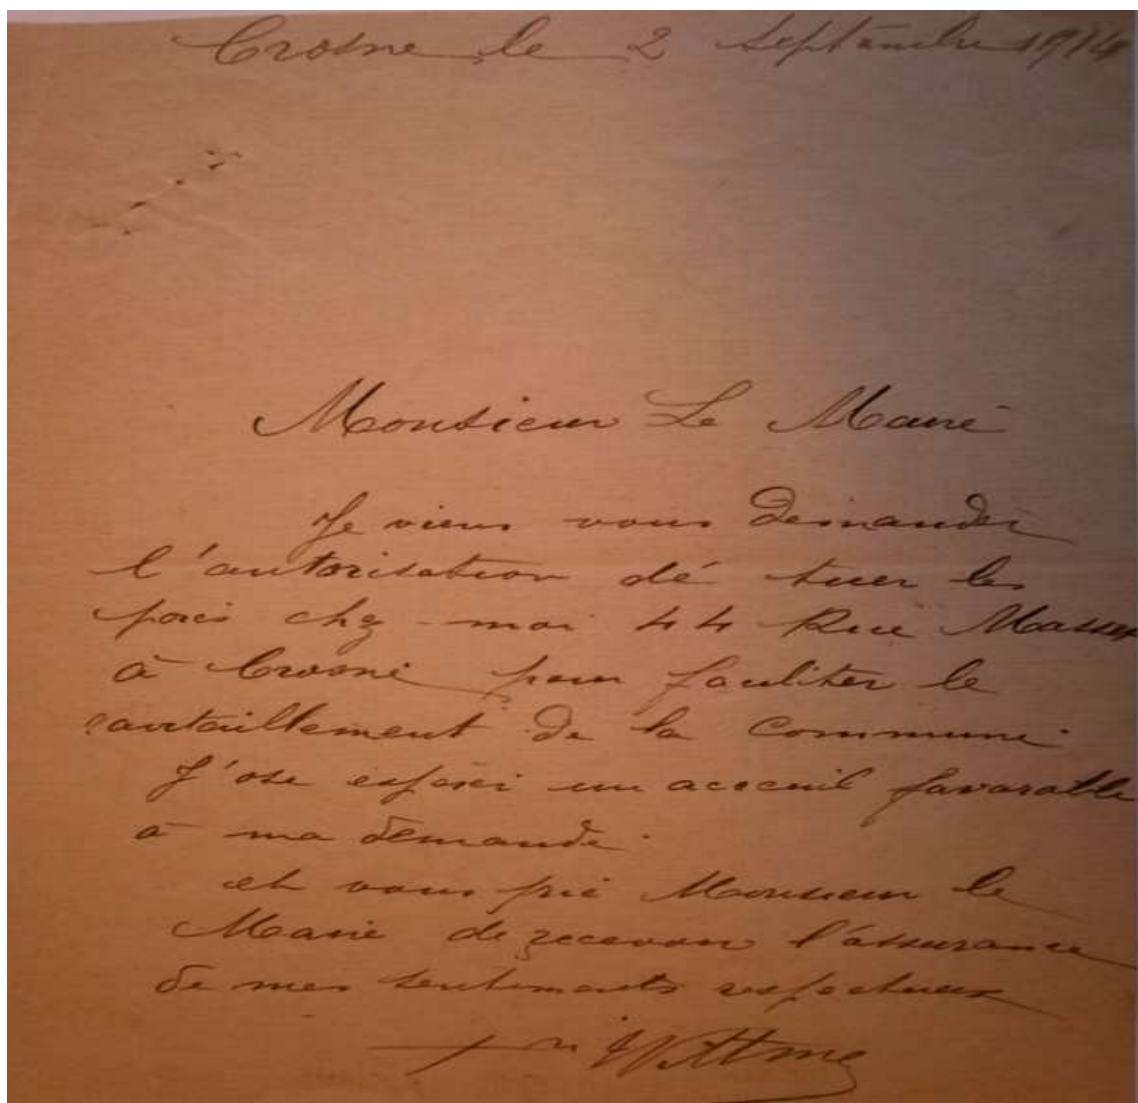 Crosne le 2 Septembre 1914
Monsieur Le Maire
Je viens vous demander
l'autorisation de tuer les
porcs chez moi 44 Rue
à Crosne pour faciliter le
ravitaillement de la Commune.
J'ose espérer un acceuil favorable
à ma demande.
et vous prie Monsieur le
Maire de recevoir l'assurance
de mes sentiments respectueux